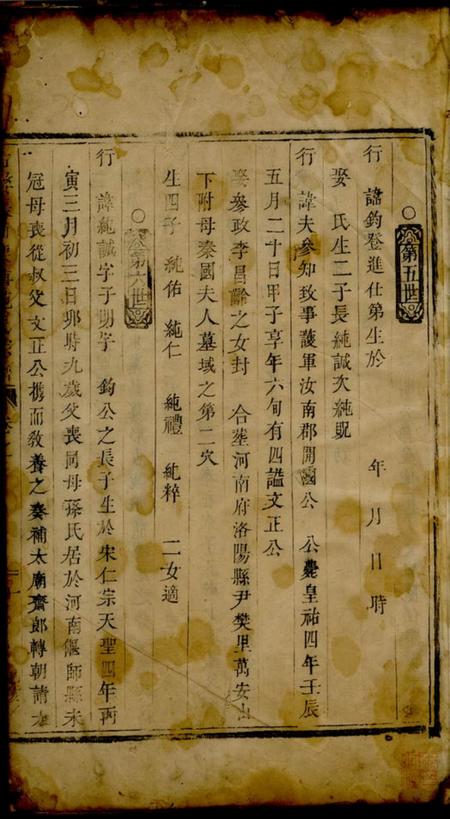 第五世
行 諱鈞登進仕第生於 年 月 日 時
娶 氏生二子長純誠次純貺
行 諱夫參知致事護軍汝南郡開國公 公薨皇祐四年壬辰
五月二十日甲子享年六旬有四謚文正公
娶參政李昌齡之女封 合葬河南府洛陽縣尹樊里萬安山
下附母秦國夫人墓域之第二穴
生四子 純佑 純仁 純禮 純粹 二女適
第六世
行 諱純誠字子明 鈞公之長子生於宋仁宗天聖四年丙
寅三月初三日卯時九歲父喪同母孫氏居於河南偃師縣未
冠母喪從叔父文正公携而教養之奏補太廟齋郎轉朝請大